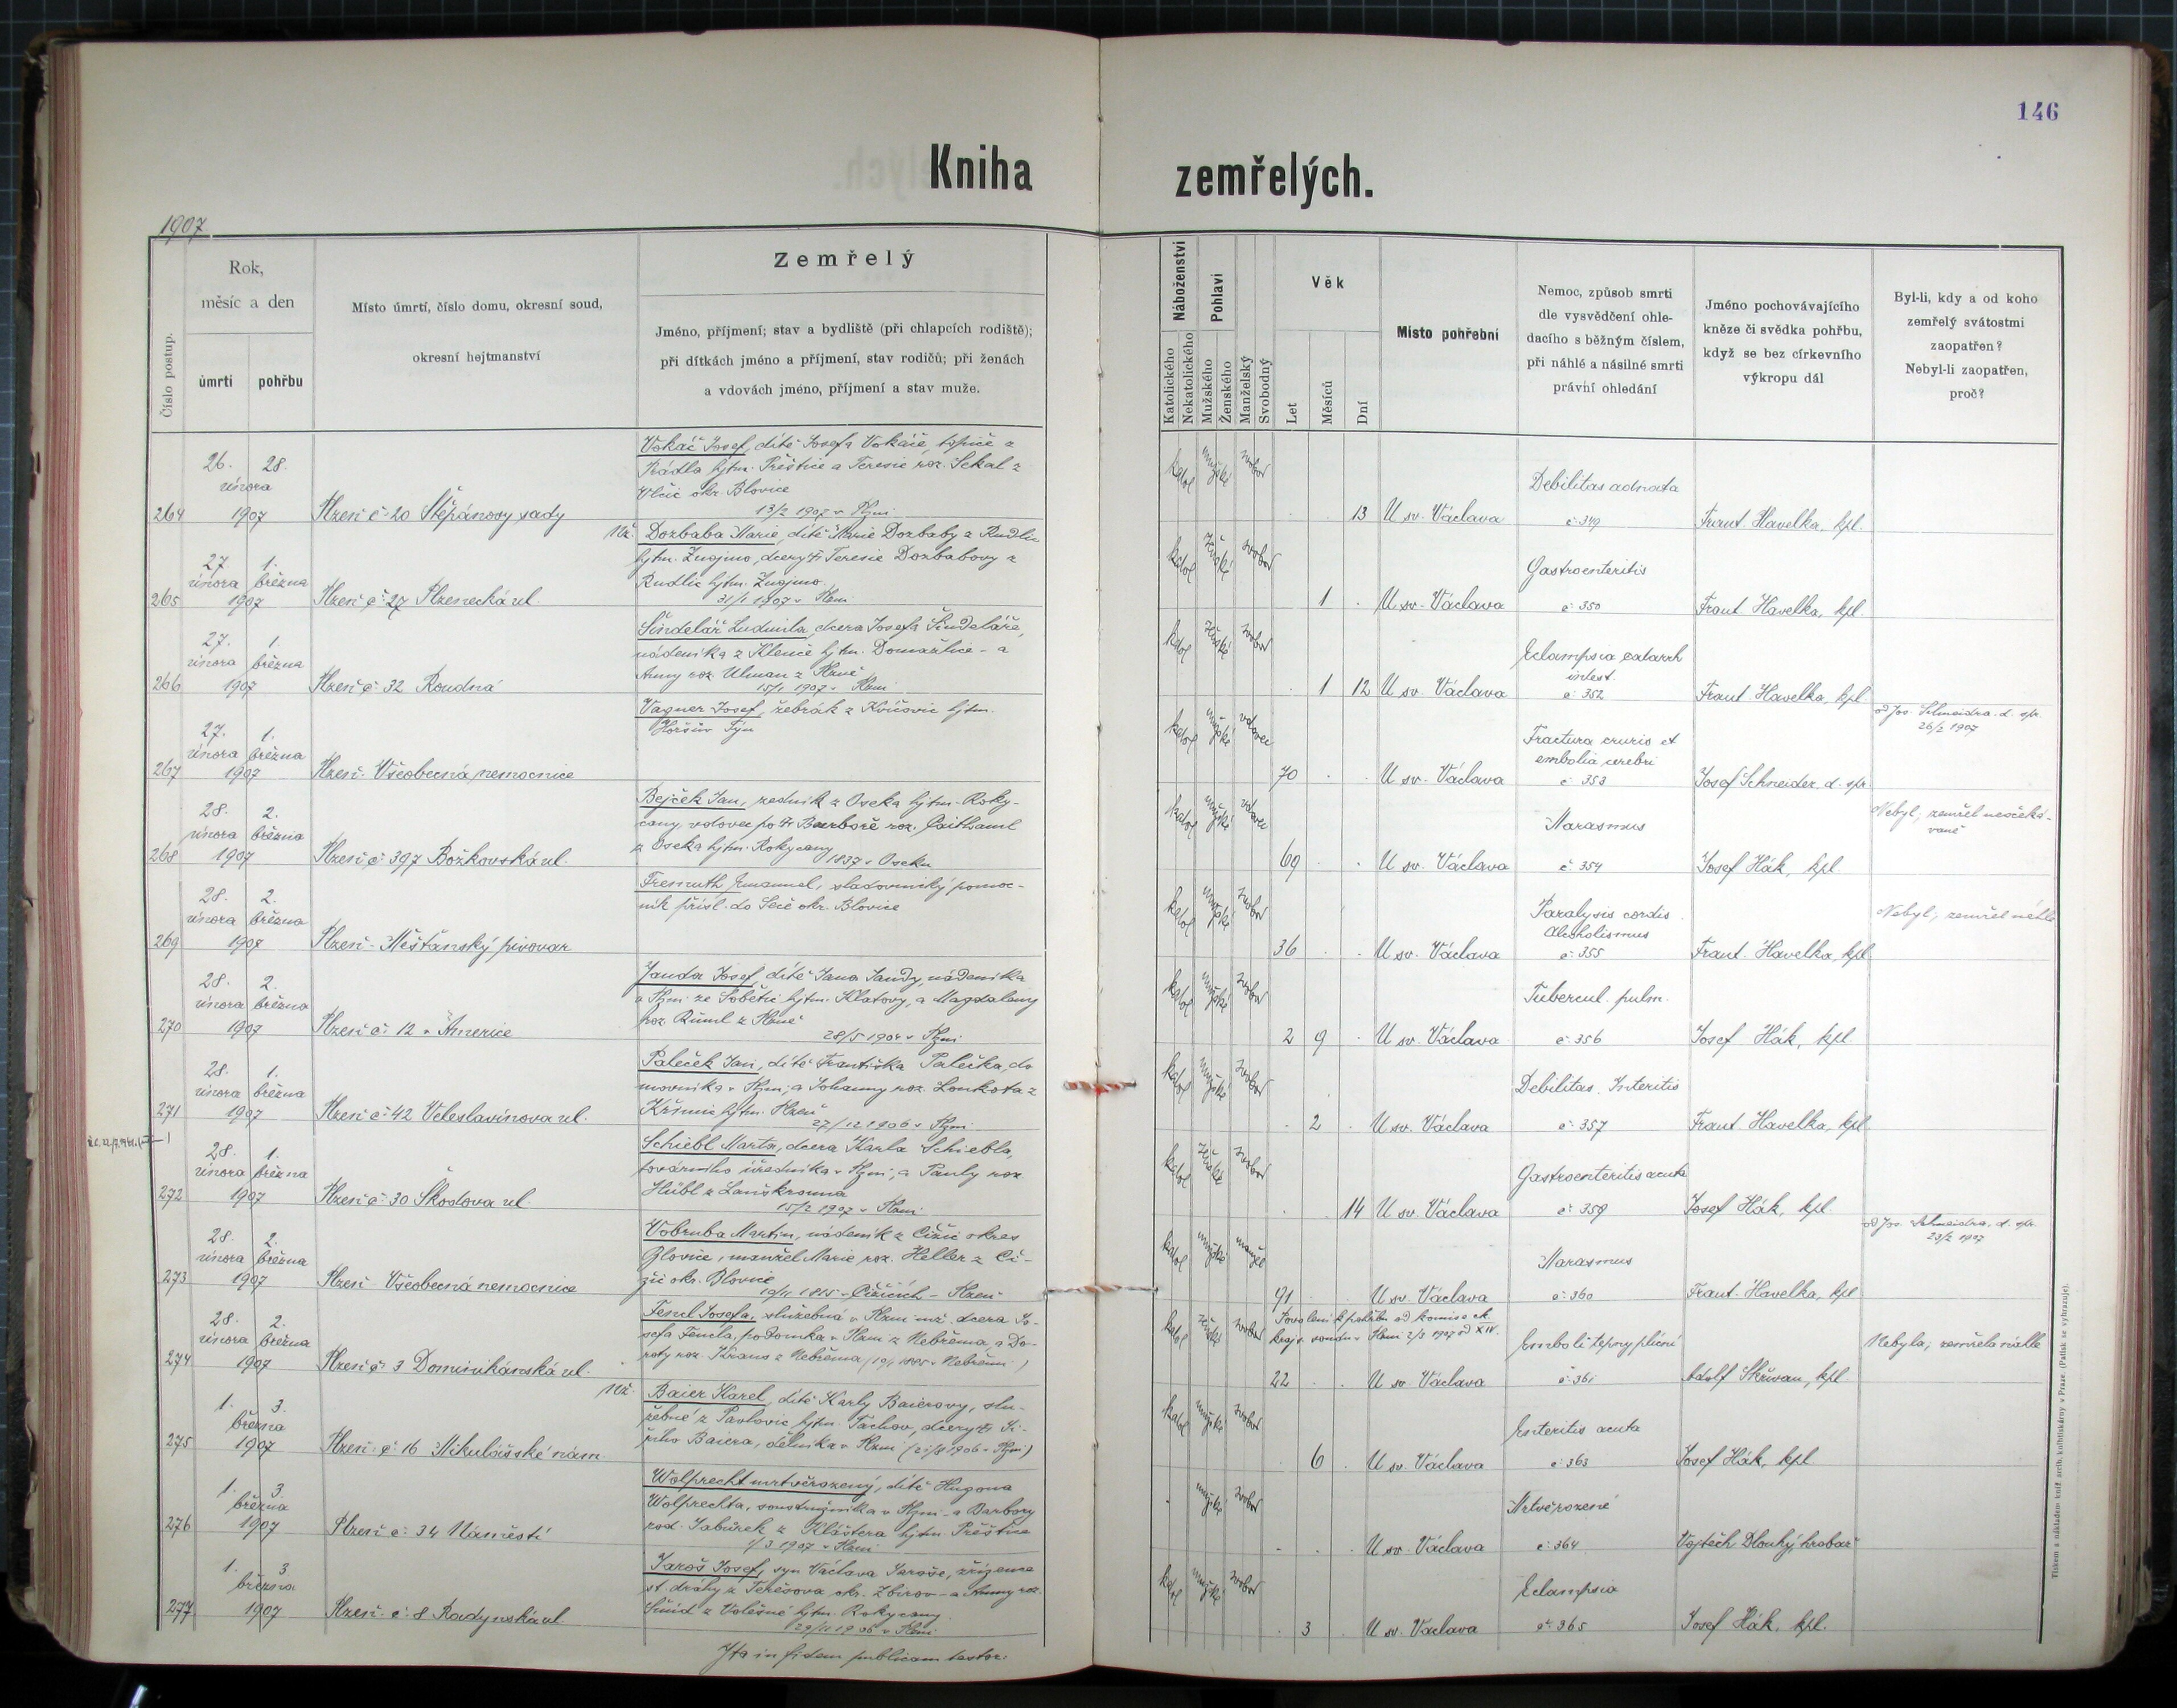 146
Kniha zemřelých.
1907
Číslo postup.
Rok, měsíc a den
úmrtí
pohřbu
Místo úmrtí, číslo domu, okresní soud,
okresní hejtmanství
Zemřelý
Jméno, příjmení; stav a bydliště (při chlapcích rodiště);
při dítkách jméno a příjmení, stav rodičů; při ženách
a vdovách jméno, příjmení a stav muže.
Náboženství
Katolického
Nekatolického
Pohlaví
Mužského
Ženského
Manželský
Svobodný
Věk
Let
Měsíců
Dní
Místo pohřební
Nemoc, způsob smrti
dle vysvědčení ohle-
dacího s běžným číslem,
při náhlé a násilné smrti
právní ohledání
Jméno pochovávajícího
kněze či svědka pohřbu,
když se bez církevního
výkropu dál
Byl-li, kdy a od koho
zemřelý svátostmi
zaopatřen?
Nebyl-li zaopatřen,
proč?
264
26. 28.
února
1907
Plzeň č. 20 Štěpánovy sady
Vokáč Josef, dítě Josefa Vokáče, topiče z
Prádla hjtm. Přeštice a Teresie roz. Sekal z
Vlčic okr. Blovice
13/2 1907 v Plzni
katol mužské svobod
13 U sv. Václava
Debilitas adnata
č. 349
Frant. Havelka, kpl.
265
27. 1.
února března
1907
Plzeň č. 27 Plzenecká ul.
Nž. Dozbaba Marie, dítě Marie Dozbaby z Rudlic
hjtm. Znojmo, dcery † Teresie Dozbabovy z
Rudlic hjtm. Znojmo.
31/1 1907 v Plzni
katol ženské svobod
1 U sv. Václava
Gastroenteritis
č. 350
Frant Havelka, kpl
266
27. 1.
února března
1907
Plzeň č. 32 Roudná
Šindelář Ludmila, dcera Josefa Šindeláře,
nádeníka z Klenče hjtm. Domažlice - a
Anny roz. Ulman z Plzně
15/1 1907 v Plzni
katol ženské svobod
1 12 U sv. Václava
Eclampsia catarrh
intest.
č. 352
Frant Havelka, kpl
267
27. 1.
února března
1907
Plzeň - Všeobecná nemocnice
Vagner Josef, žebrák z Kvíčovic hjtm.
Horšův Týn
katol mužské vdovec
70 U sv. Václava
Fractura cruris et
embolia cerebri
č. 353
Josef Schneider d. spr.
od Jos. Schneidra d. spr.
26/2 1907
268
28. 2.
února března
1907
Plzeň č. 397 Božkovská ul.
Bejček Jan, zedník z Oseka hjtm. Roky-
cany, vdovec po † Barboře roz.
z Oseka hjtm. Rokycany
1837 v Oseku
katol mužské vdovec
69 U sv. Václava
Marasmus
č. 354
Josef Hák, kpl
Nebyl; zemřel neočeká-
vaně
269
28. 2.
února března
1907
Plzeň - Měšťanský pivovar
Fremuth Emanuel, sladovnický pomoc-
ník přísl. do Seče okr. Blovice
katol mužské svobod
36 U sv. Václava
Paralysis cordis
Alcoholismus
č. 355
Frant. Havelka, kpl
Nebyl; zemřel náhle
270
28. 2.
února března
1907
Plzeň č. 12 v Americe
Janda Josef, dítě Jana Jandy, nádeníka
v Plzni ze Sobětic hjtm. Klatovy, a Magdaleny
roz. Ruml z Plzně
28/5 1904 v Plzni
katol mužské svobod
2 9 U sv. Václava
Tubercul. pulm.
č. 356
Josef Hák, kpl
271
28. 1.
února března
1907
Plzeň č. 42 Veleslavínova ul.
Paleček Jan, dítě Františka Palečka, do-
movníka v Plzni, a Johanny roz. Loukota z
Křimic hjtm. Plzeň
27/12 1906 v Plzni
katol mužské svobod
2 U sv. Václava
Debilitas. Enteritis
č. 357
Frant. Havelka, kpl
272
28. 1.
února března
1907
Plzeň č. 30 Škodova ul
Schiebl Marta, dcera Karla Schiebla,
továrního úředníka v Plzni, a Pauly roz.
Hübl z Lanškrouna
15/2 1907 v Plzni
katol ženské svobod
14 U sv. Václava
Gastroenteritis acuta
č. 359
Josef Hák, kpl.
273
28. 2.
února března
1907
Plzeň - Všeobecná nemocnice
Vobruba Martin, nádeník z Čižic okres
Blovice, manžel Marie roz. Heller z Či-
žic okr. Blovice
10/11 1815 v Čižicích - Plzeň
katol mužské manžel
91 U sv. Václava
Marasmus
č. 360
Frant. Havelka, kpl
od Jos. Schneidra, d. spr.
23/2 1907
274
28. 2.
února března
1907
Plzeň č. 3 Dominikánská ul.
Fencl Josefa, služebná v Plzni nž. dcera Jo-
sefa Fencla, podomka v Plzni z Nebřema, a Do-
roty roz. Kraus z Nebřema (19/1 1885 v Nebřemi)
katol ženské svobod
Povolení k pohřbu od komise ck.
krajs. soudu v Plzni 2/3 1907 od XIV.
22 U sv. Václava
Embolí tepny plicní
č. 361
Adolf Skřivan, kpl
Nebyla; zemřela náhle
275
1. 3.
března
1907
Plzeň č. 16 Mikulášské nám.
Nž. Baier Karel, dítě Karly Baierovy, slu-
žebné z Pavlovic hjtm. Tachov, dcery † Ji-
řího Baiera, dělníka v Plzni (21/8 1906 v Plzni)
katol mužské svobod
6 U sv. Václava
Enteritis acuta
č. 363
Josef Hák, kpl
276
1. 3.
března
1907
Plzeň č. 34 Náměstí
Wolprecht mrtvěrozený, dítě Hugona
Wolprechta, soustružníka v Plzni a Barbory
rod. Jabůrek z Kláštera hjtm. Přeštice
1/3 1907 v Plzni
mužské svobod
U sv. Václava
Mrtvěrozené
č. 364
Vojtěch Dlouhý, hrobař
277
1. 3.
března
1907
Plzeň č. 8 Radynská ul.
Jaroš Josef, syn Václava Jaroše, zřízence
st. dráhy z Terešova okr. Zbirov - a Anny roz.
Šmíd z Volešné hjtm. Rokycany.
29/11 1906 v Plzni
katol mužské svobod
3 U sv. Václava
Eclampsia
č. 365
Josef Hák, kpl.
Ita in fidem publicam testor: